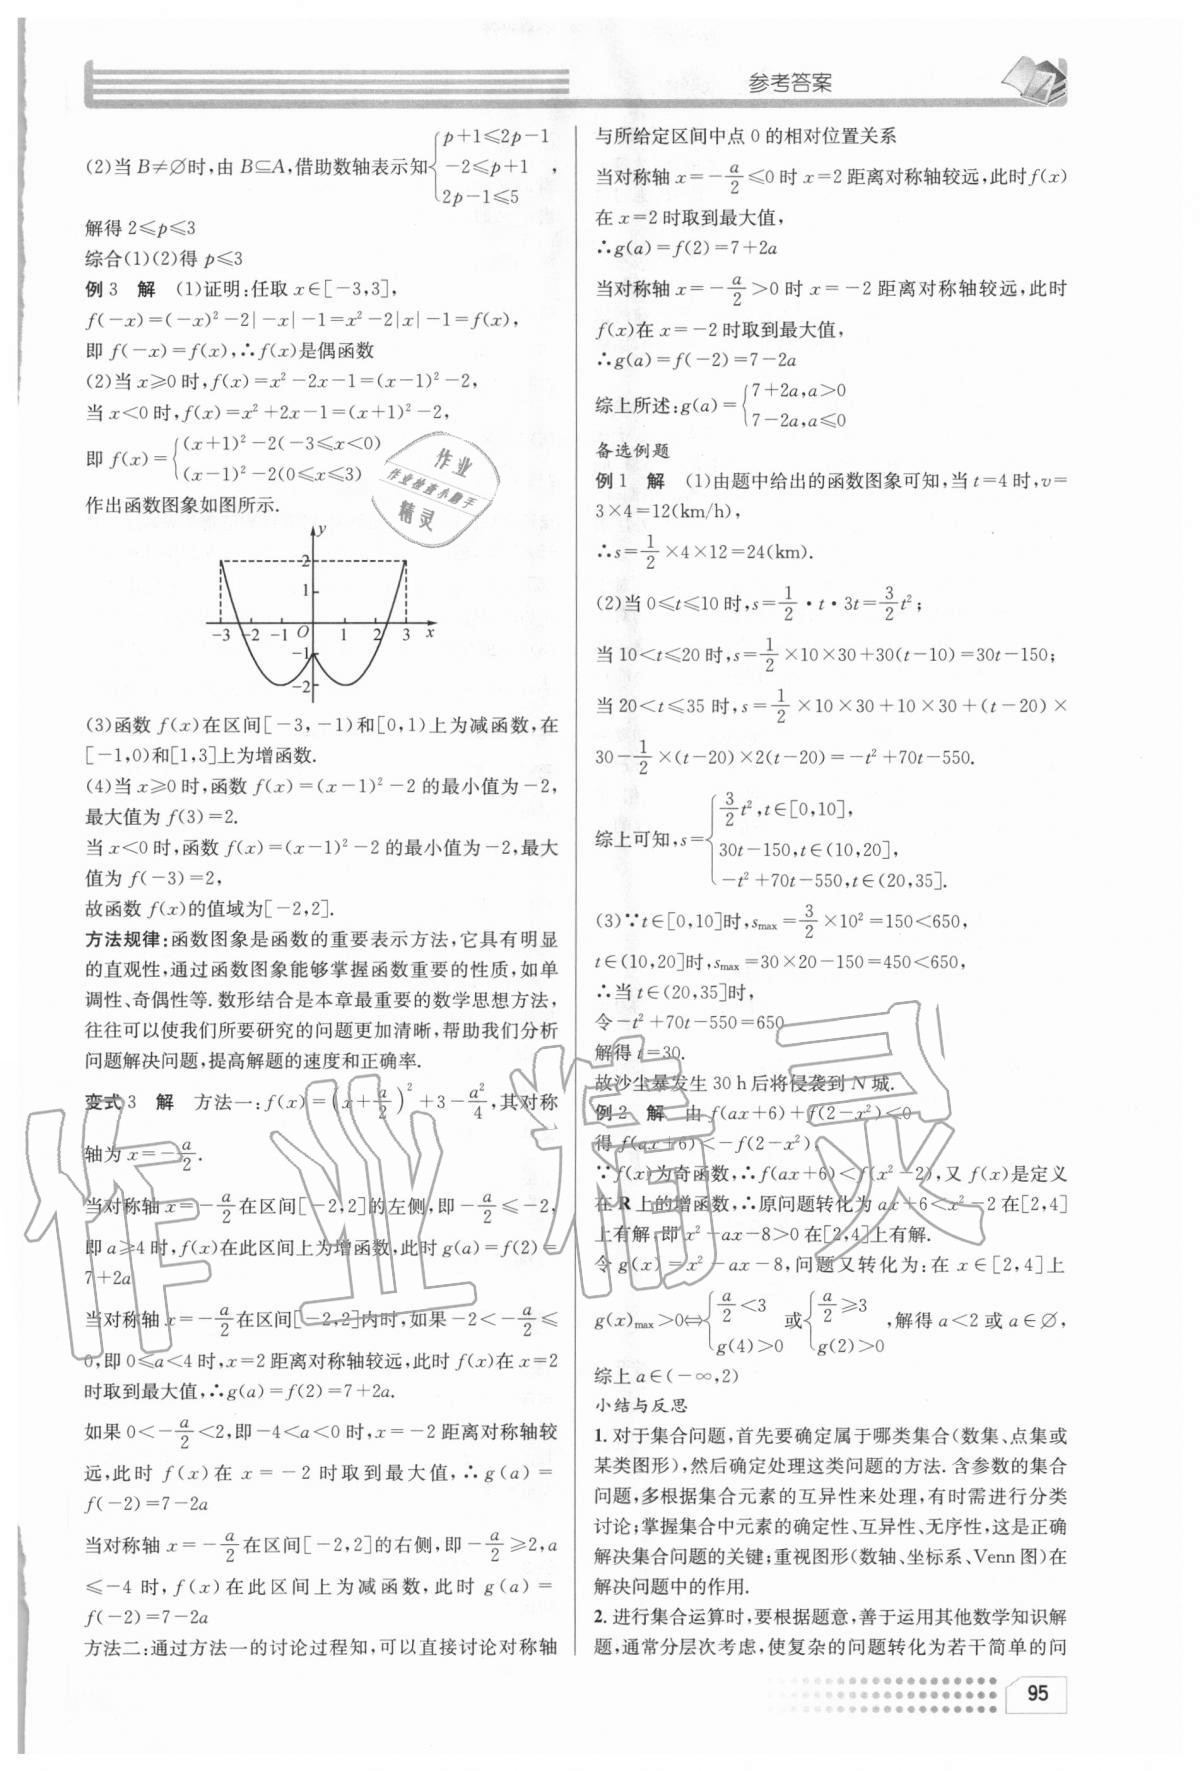 参考答案
(2)当 B≠∅时,由 B⊆A,借助数轴表示知{p+1≤2p-1
-2≤p+1 ,
2p-1≤5
解得 2≤p≤3
综合(1)(2)得 p≤3
例 3 解 (1)证明:任取 x∈[-3,3],
f(-x)=(-x)²-2|-x|-1=x²-2|x|-1=f(x),
即 f(-x)=f(x),∴f(x)是偶函数
(2)当 x≥0时,f(x)=x²-2x-1=(x-1)²-2,
当 x<0 时,f(x)=x²+2x-1=(x+1)²-2,
即 f(x)={(x+1)²-2(-3≤x<0)
(x-1)²-2(0≤x≤3)
作出函数图象如图所示.
y
2
1
-3 -2 -1 O 1 2 3 x
-1
-2
(3)函数 f(x)在区间[-3,-1)和[0,1)上为减函数,在
[-1,0)和[1,3]上为增函数.
(4)当 x≥0 时,函数 f(x)=(x-1)²-2 的最小值为-2,
最大值为 f(3)=2.
当 x<0 时,函数 f(x)=(x-1)²-2 的最小值为-2,最大
值为 f(-3)=2,
故函数 f(x)的值域为[-2,2].
方法规律:函数图象是函数的重要表示方法,它具有明显
的直观性,通过函数图象能够掌握函数重要的性质,如单
调性、奇偶性等. 数形结合是本章最重要的数学思想方法,
往往可以使我们所要研究的问题更加清晰,帮助我们分析
问题解决问题,提高解题的速度和正确率.
变式 3 解 方法一:f(x)=(x+a/2)²+3-a²/4,其对称
轴为 x=-a/2.
当对称轴 x=-a/2在区间[-2,2]的左侧,即-a/2≤-2,
即 a≥4 时,f(x)在此区间上为增函数,此时 g(a)=f(2)=
7+2a
当对称轴 x=-a/2在区间[-2,2]内时,如果-2<-a/2≤
0,即 0≤a<4 时,x=2 距离对称轴较远,此时 f(x)在 x=2
时取到最大值,∴g(a)=f(2)=7+2a.
如果 0<-a/2<2,即-4<a<0 时,x=-2 距离对称轴较
远,此时 f(x)在 x=-2 时取到最大值,∴g(a)=
f(-2)=7-2a
当对称轴 x=-a/2在区间[-2,2]的右侧,即-a/2≥2,a
≤-4 时,f(x)在此区间上为减函数,此时 g(a)=
f(-2)=7-2a
方法二:通过方法一的讨论过程知,可以直接讨论对称轴
与所给定区间中点 0 的相对位置关系
当对称轴 x=-a/2≤0 时 x=2 距离对称轴较远,此时f(x)
在 x=2 时取到最大值,
∴g(a)=f(2)=7+2a
当对称轴 x=-a/2>0 时 x=-2 距离对称轴较远,此时
f(x)在 x=-2 时取到最大值,
∴g(a)=f(-2)=7-2a
综上所述:g(a)={7+2a,a>0
7-2a,a≤0
备选例题
例 1 解 (1)由题中给出的函数图象可知,当 t=4 时,v=
3×4=12(km/h),
∴s=1/2×4×12=24(km).
(2)当 0≤t≤10 时,s=1/2·t·3t=3/2t²;
当 10<t≤20 时,s=1/2×10×30+30(t-10)=30t-150;
当 20<t≤35 时,s=1/2×10×30+10×30+(t-20)×
30-1/2×(t-20)×2(t-20)=-t²+70t-550.
综上可知,s={3/2t²,t∈[0,10],
30t-150,t∈(10,20],
-t²+70t-550,t∈(20,35].
(3)∵t∈[0,10]时,smax=3/2×10²=150<650,
t∈(10,20]时,smax=30×20-150=450<650,
∴当 t∈(20,35]时,
令-t²+70t-550=650
解得 t=30.
故沙尘暴发生 30 h 后将侵袭到 N 城.
例 2 解 由 f(ax+6)+f(2-x²)<0
得 f(ax+6)<-f(2-x²),
∵f(x)为奇函数,∴f(ax+6)<f(x²-2),又 f(x)是定义
在 R 上的增函数,∴原问题转化为 ax+6<x²-2 在[2,4]
上有解,即 x²-ax-8>0 在[2,4]上有解.
令 g(x)=x²-ax-8,问题又转化为:在 x∈[2,4]上
g(x)max>0⇔{a/2<3
g(4)>0 或{a/2≥3
g(2)>0 ,解得 a<2 或 a∈∅,
综上 a∈(-∞,2)
小结与反思
1. 对于集合问题,首先要确定属于哪类集合(数集、点集或
某类图形),然后确定处理这类问题的方法. 含参数的集合
问题,多根据集合元素的互异性来处理,有时需进行分类
讨论;掌握集合中元素的确定性、互异性、无序性,这是正确
解决集合问题的关键;重视图形(数轴、坐标系、Venn 图)在
解决问题中的作用.
2. 进行集合运算时,要根据题意,善于运用其他数学知识解
题,通常分层次考虑,使复杂的问题转化为若干简单的问
95
作业
作业检查小助手
精灵
作业精灵